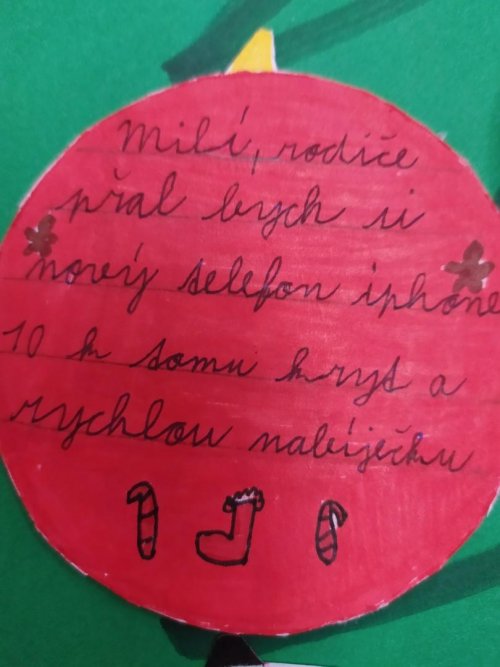 Milí, rodiče
přal bych si
nový telefon iphone
10 k tomu kryt a
rychlou nabíječku